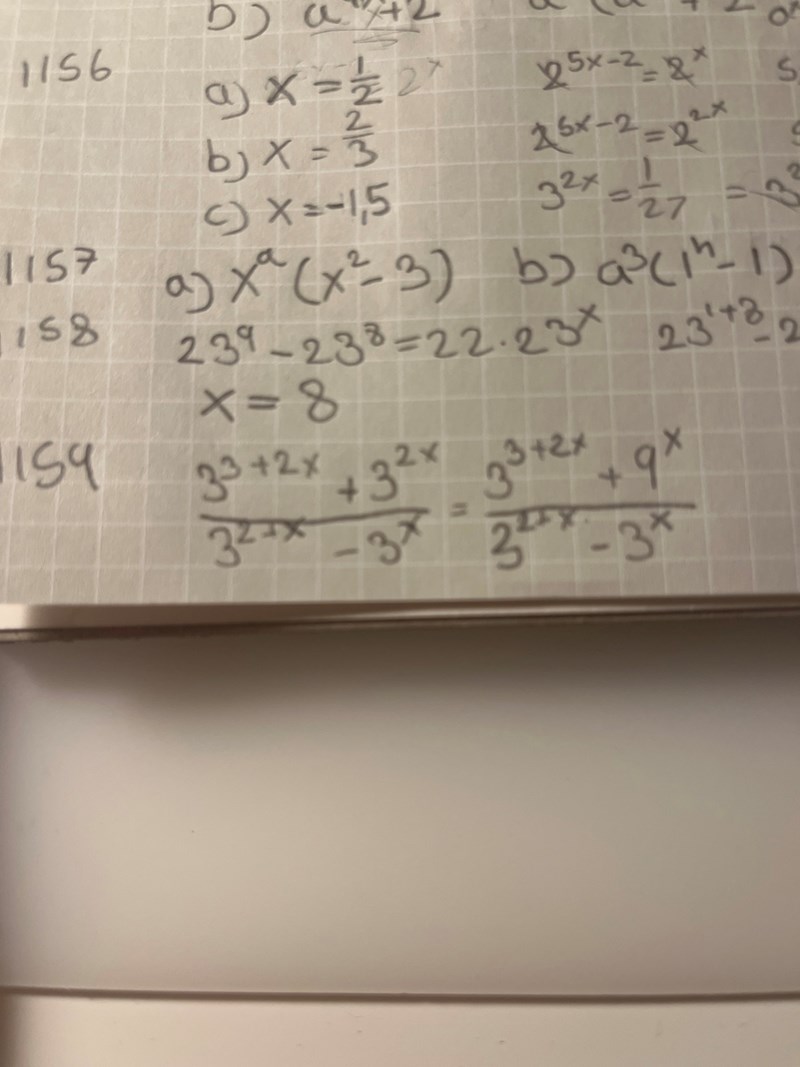 b)
1156 a) x = 1/2 2^x 2^{5x-2} = 2^x
b) x = 2/3 2^{5x-2} = 2^{2x}
c) x = -1,5 3^{2x} = 1/27 = 3
1157 a) x^a (x^2 - 3) b) a^3 (1^n - 1)
1158 23^9 - 23^8 = 22 · 23^x 23^{1+8} - 2
x = 8
1159 (3^{3+2x} + 3^{2x}) / (3^{2+x} - 3^x) = (3^{3+2x} + 9^x) / (3^{2+x} - 3^x)